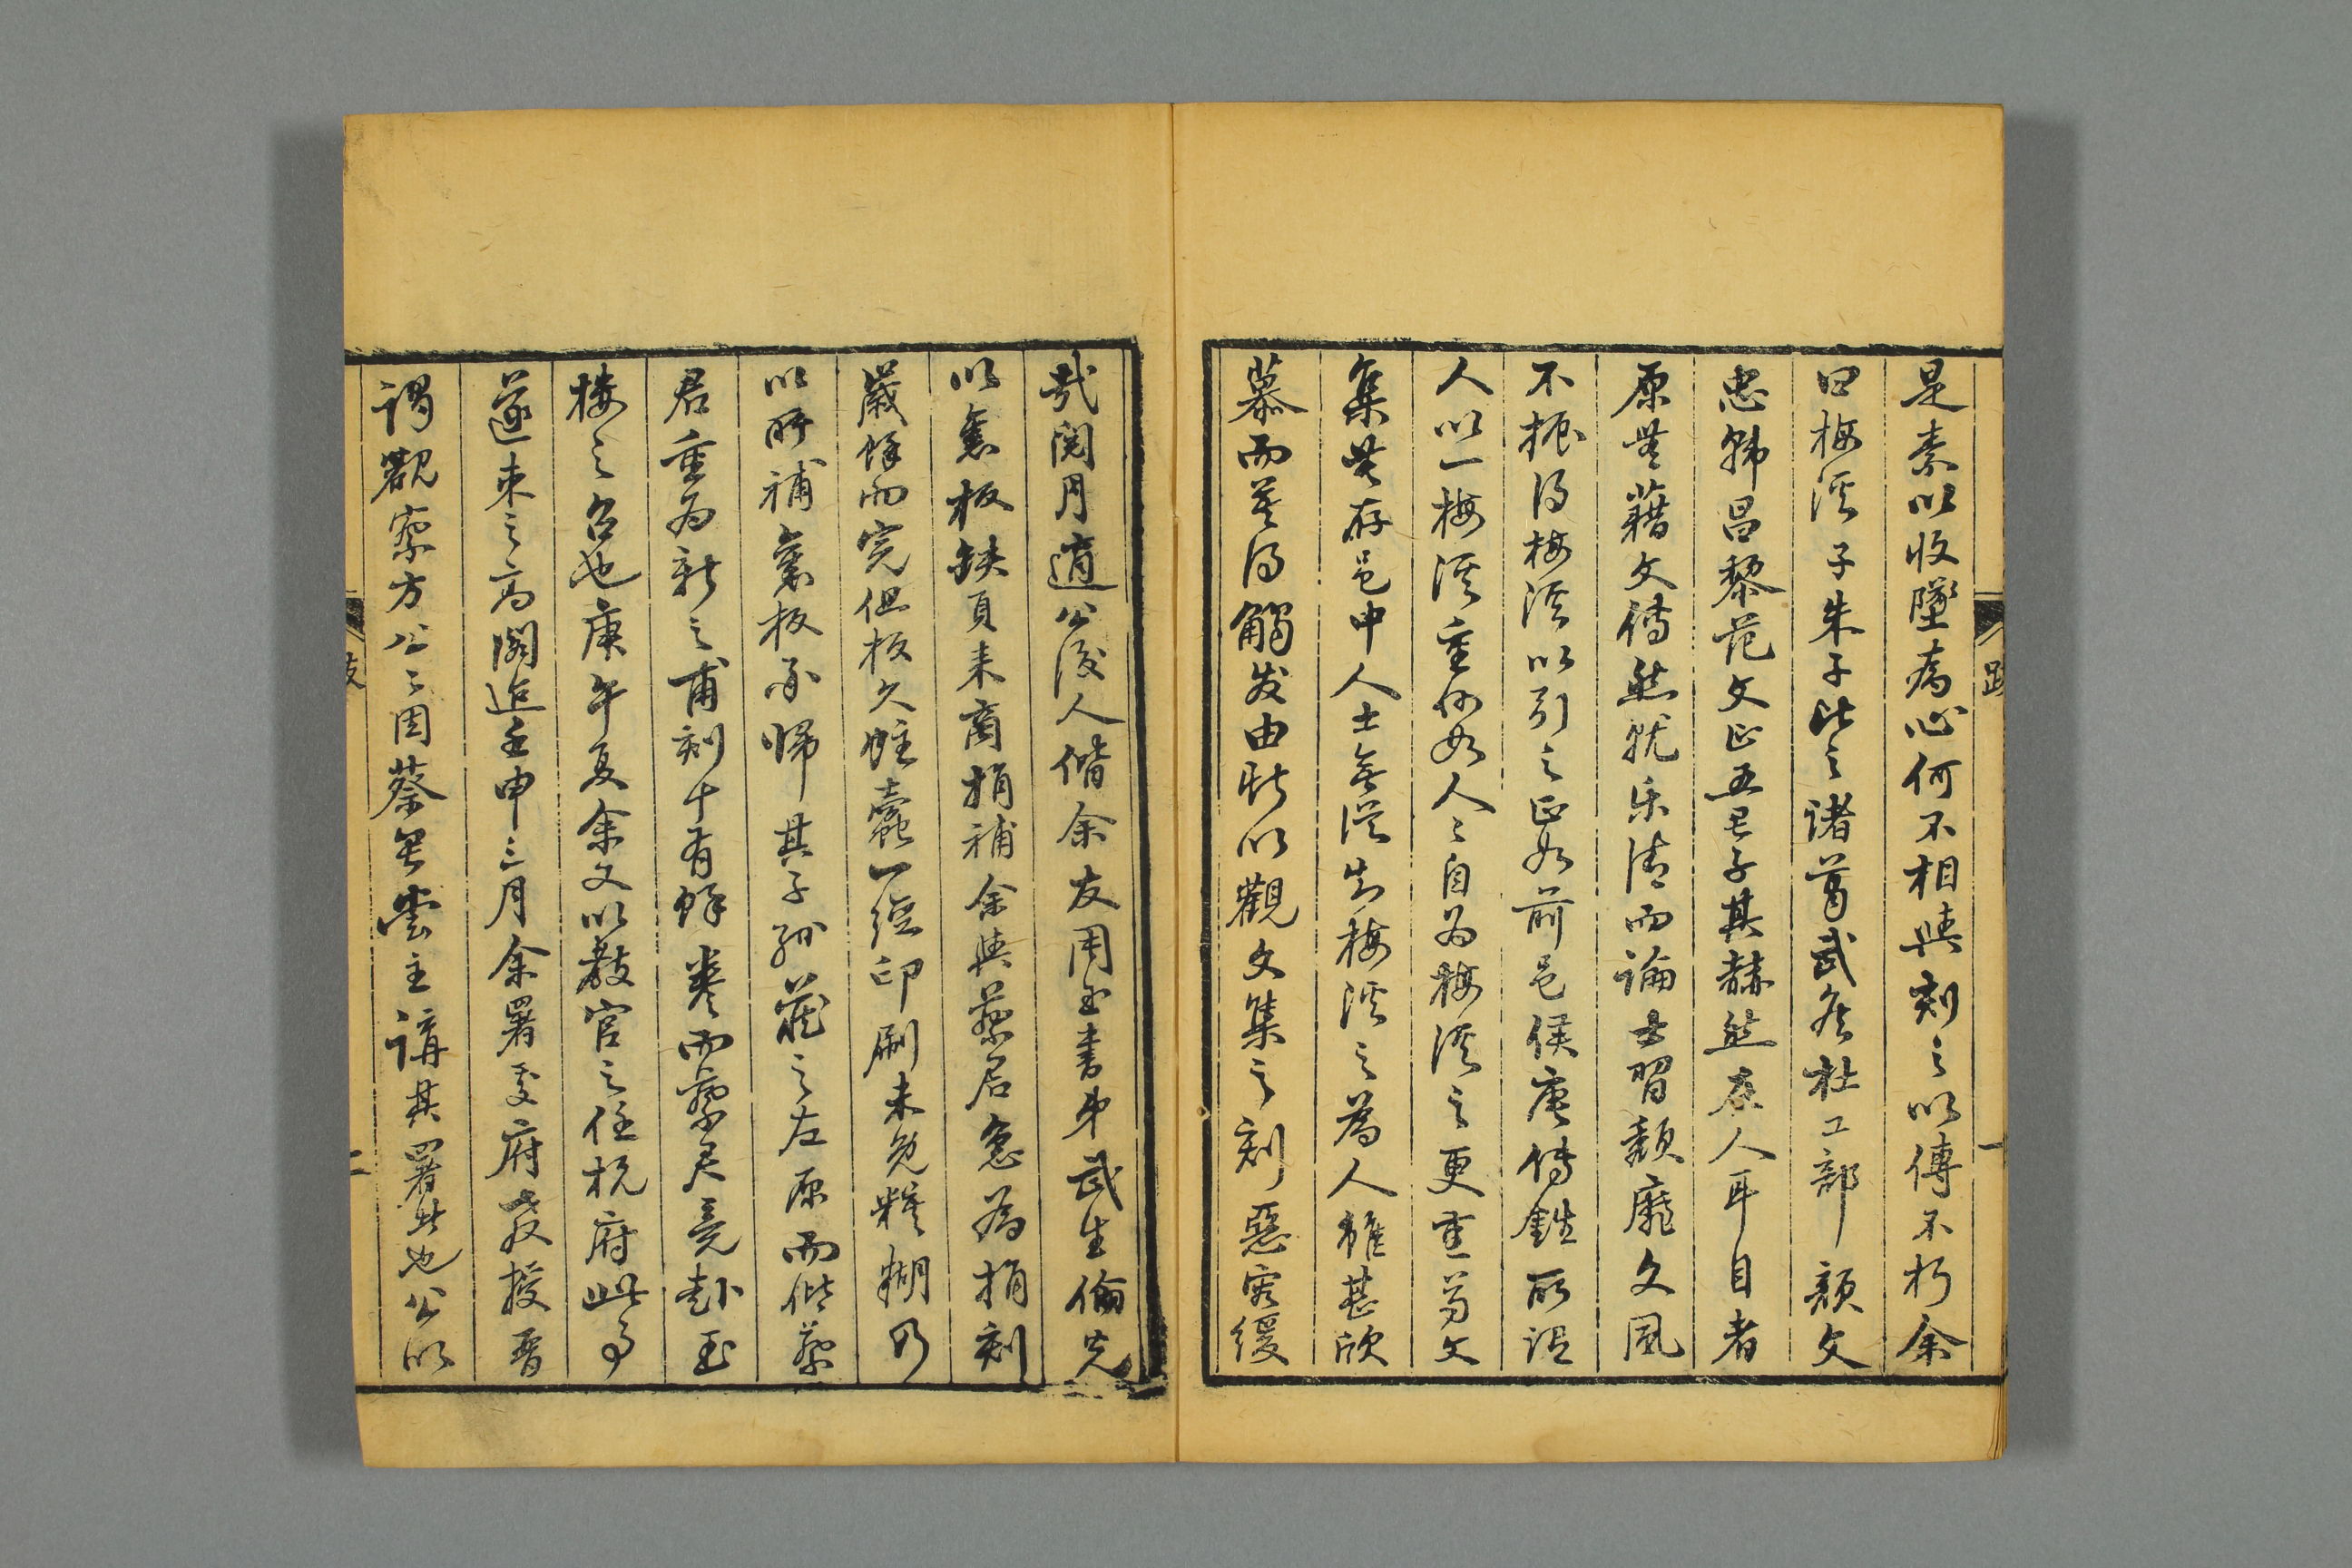 是素以收墜為心何不相與刻之以傳不朽余
曰梅溪子朱子比之諸葛武侯杜工部顏文
忠韓昌黎范文正五君子其赫然在人耳目者
原無藉文傳然就樂清而論士習頹靡文風
不振得梅溪以引之正如前邑侯唐傳鉎所謂
人以一梅溪重何如人〻自為梅溪之更重若文
集無存邑中人士無從知梅溪之為人雖甚欣
慕而莫得觸发由斯以觀文集之刻惡容緩
哉閱月適公後人偕余友周玉書弟武生倫先
以舊板缺頁来商捐補余與蔡君急為捐刻
歲餘而完但板久蛀蠹一經印刷未免糢糊乃
以所補舊板永歸其子孫藏之左原而偕蔡
君重為新之甫刻十有餘卷而蔡君竟赴玉
樓之召也庚午夏余又以教官之任杭府此事
遂束之高閣迨壬申三月余署處府教授晉
謁觀察方公〻因蔡君雲主講其署此也公以
跋
一
二